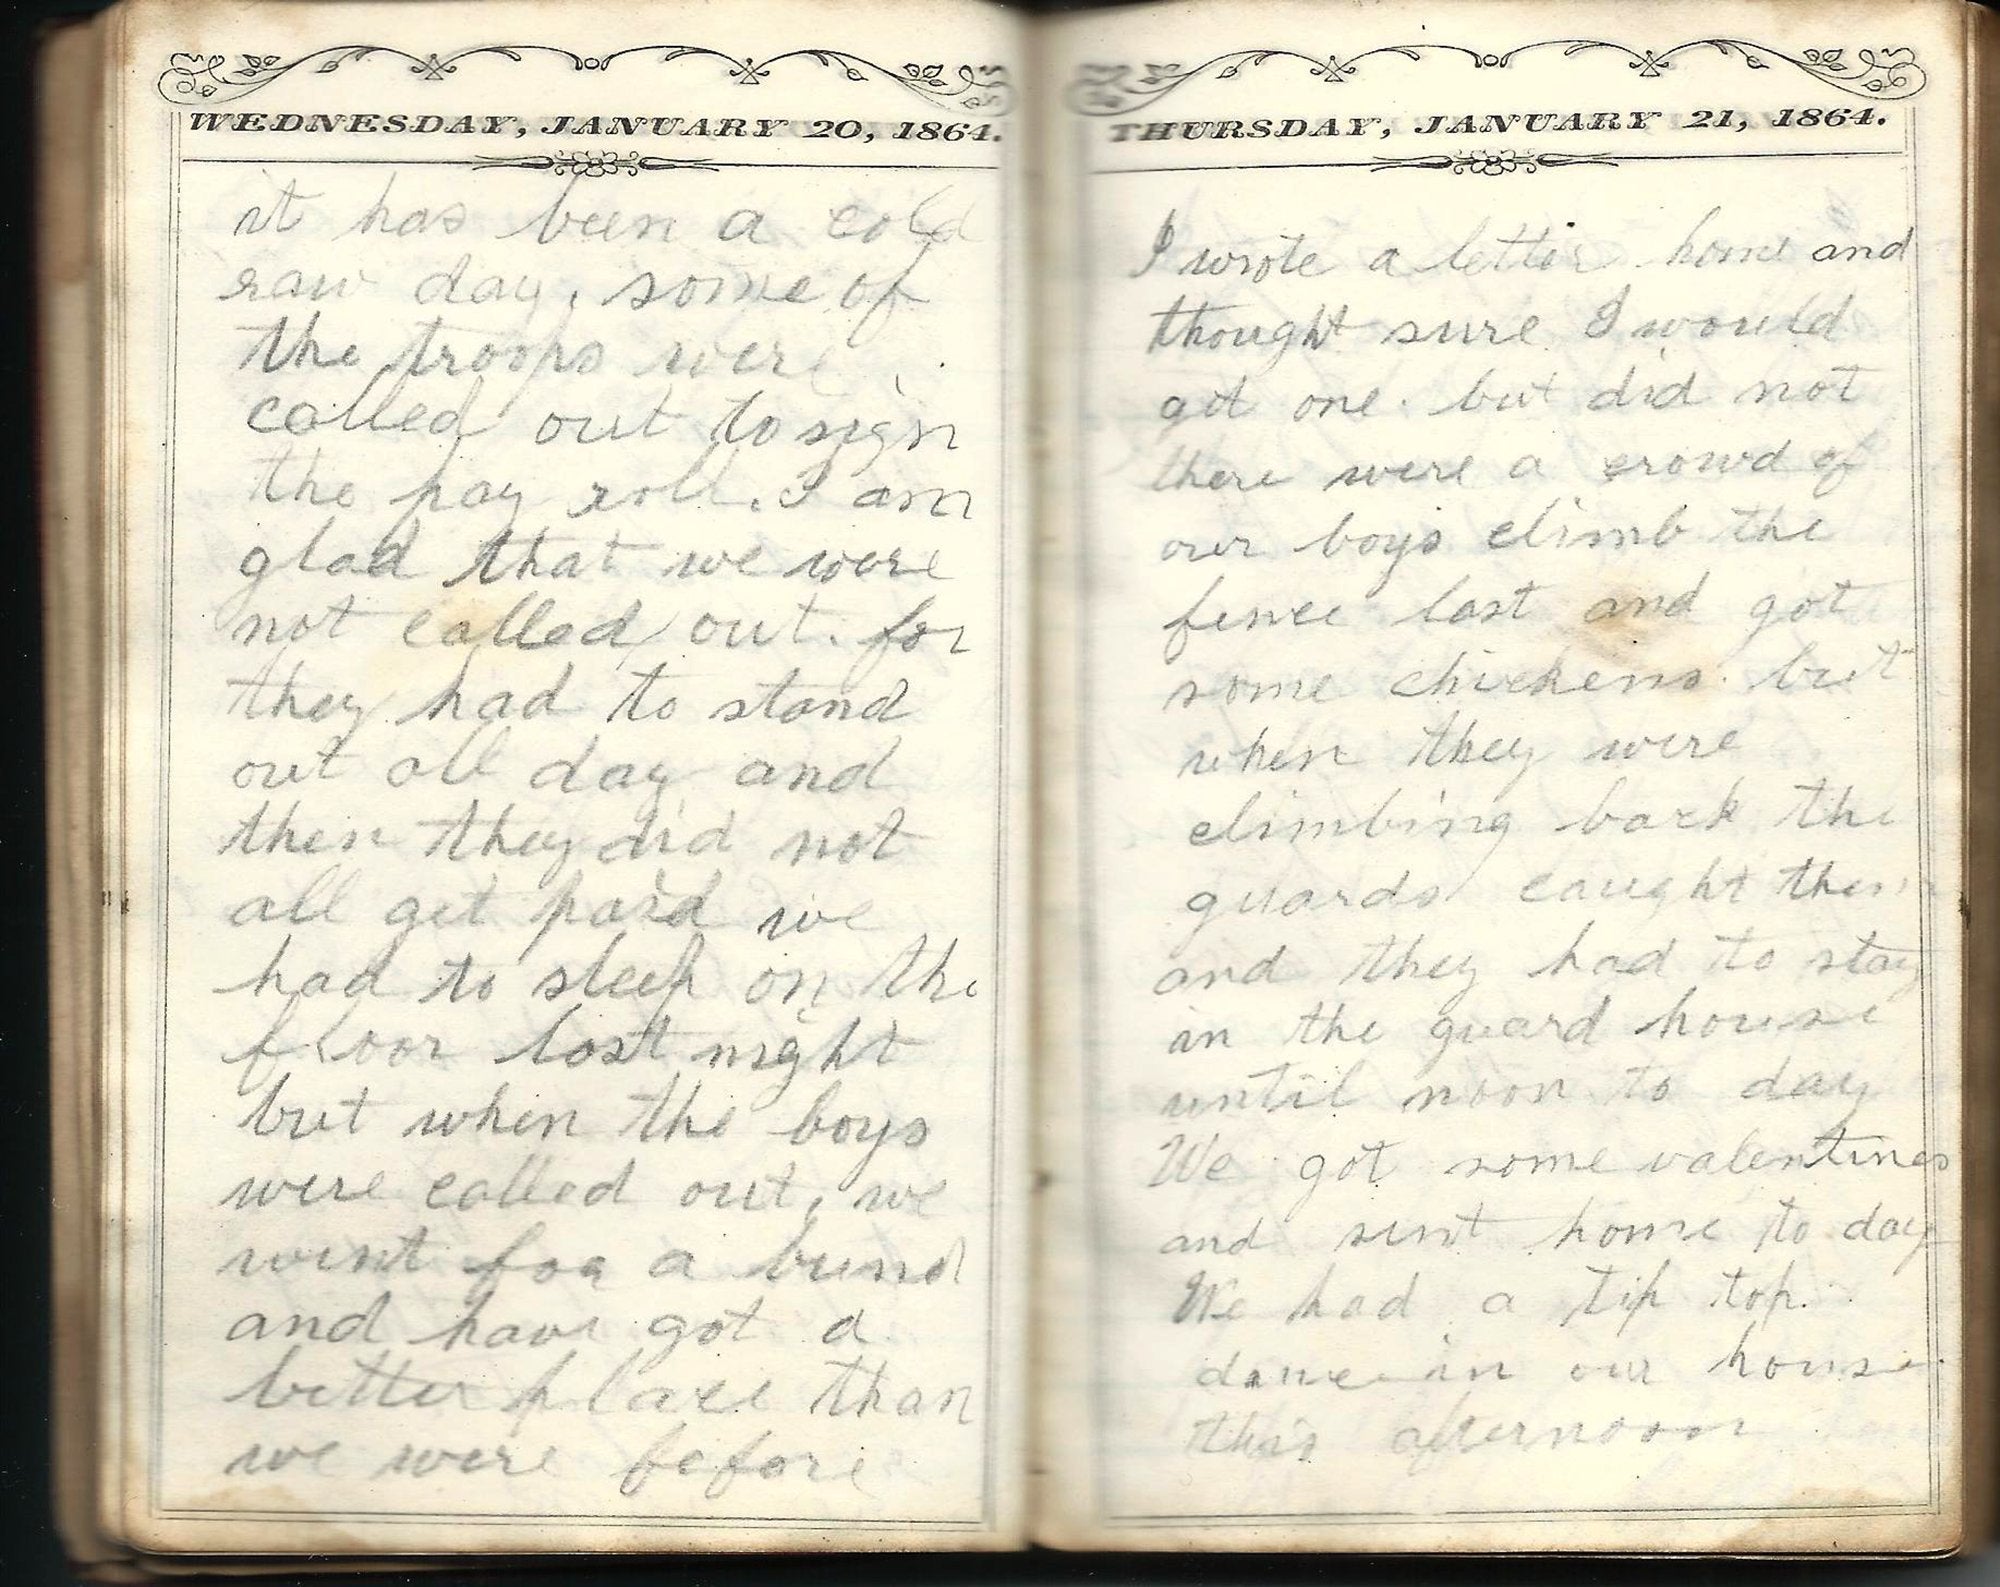 WEDNESDAY, JANUARY 20, 1864.
it has been a cold
raw day, some of
the troops were
called out to sign
the pay roll. I am
glad that we were
not called out. for
they had to stand
out all day and
then they did not
all get paid we
had to sleep on the
floor last night
but when the boys
were called out, we
went for a bund
and have got a
better place than
we were before
THURSDAY, JANUARY 21, 1864.
I wrote a letter home and
thought sure I would
get one. but did not
there were a crowd of
our boys climb the
fence last and got
some chickens. but
when they were
climbing back the
guards caught them
and they had to stay
in the guard house
until noon to day
We got some valentines
and sent home to day
We had a tip top.
dance in our house
this afternoon